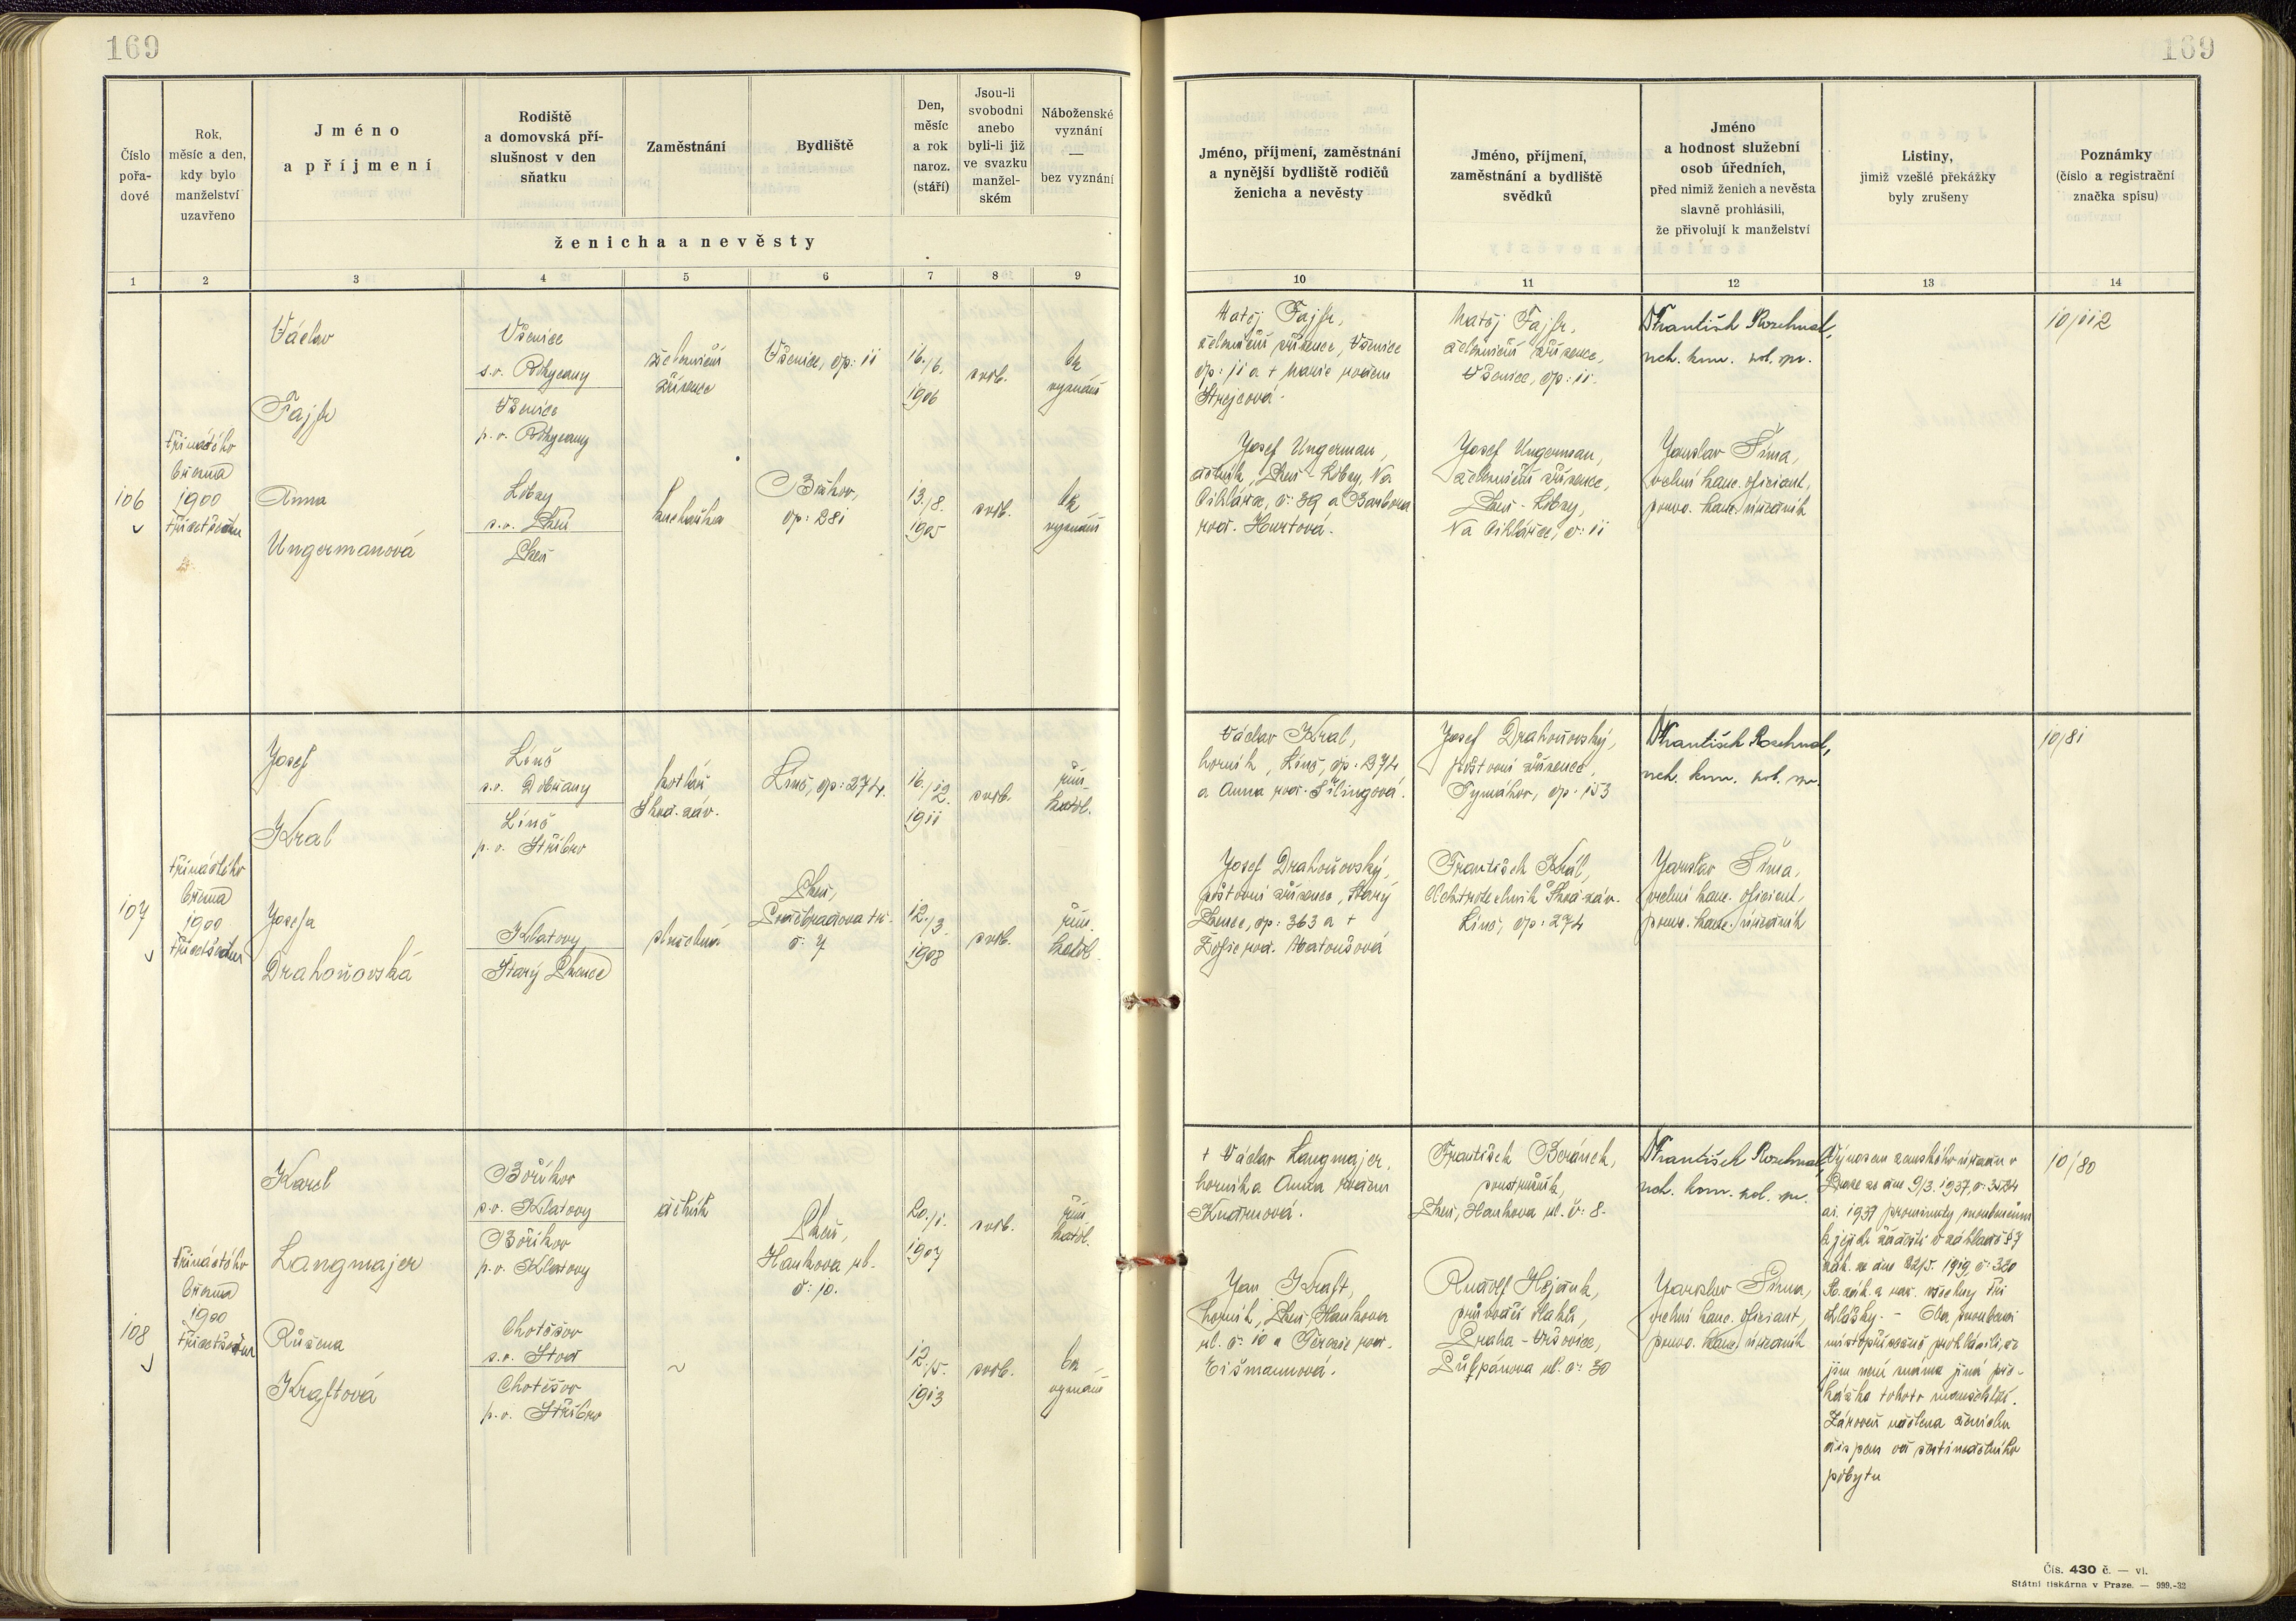 169
169
Číslo pořa- dové
Rok, měsíc a den, kdy bylo manželství uzavřeno
Jméno a příjmení
Rodiště a domovská pří- slušnost v den sňatku
Zaměstnání
Bydliště
Den, měsíc a rok naroz. (stáří)
Jsou-li svobodni anebo byli-li již ve svazku manžel- ském
Náboženské vyznání — bez vyznání
ženicha a nevěsty
Jméno, příjmení, zaměstnání a nynější bydliště rodičů ženicha a nevěsty
Jméno, příjmení, zaměstnání a bydliště svědků
Jméno a hodnost služební osob úředních, před nimiž ženich a nevěsta slavně prohlásili, že přivolují k manželství
Listiny, jimiž vzešlé překážky byly zrušeny
Poznámky (číslo a registrační značka spisu)
1 2 3 4 5 6 7 8 9 10 11 12 13 14
106
třináctého
března
1900
třicetsedm
Václav
Fajfr
Všenice
s.o. Rokycany
Všenice
p.o. Rokycany
železniční
zřízenec
Všenice, čp: 11
16./6.
1906
svob.
bez
vyznání
Anna
Ungermanová
Lobzy
s.o. Plzeň
Plzeň
kuchařka
čp: 281
13./8.
1905
svob.
bez
vyznání
Matěj Fajfr,
železniční zřízenec, Všenice
čp: 11 a + Marie rozen
Strejcová.
Josef Ungerman,
dělník, Plzeň - Lobzy, Na
Cihlářce, č: 39 a Barbora
roz. Hurtová.
Matěj Fajfr,
železniční zřízenec,
Všenice, čp: 11.
Josef Ungerman,
železniční zřízenec,
Plzeň - Lobzy,
Na Cihlářce, č: 11
Jaroslav Šíma,
vrchní kanc. oficiant,
pověř. kanc. úředník
10/112
107
třináctého
března
1900
třicetsedm
Josef
Kral
Líně
s.o. Dobřany
Líně
p.o. Stříbro
kotlář
Škod. záv.
Líně, čp: 274.
16./12.
1911
svob.
řím.
katol.
Josefa
Drahoňovská
Klatovy
Starý Plzenec
Plzeň,
č: 7
12./3.
1908
svob.
řím.
katol.
Václav Kral,
horník, Líně, čp: 274
a Anna roz. Šilingová.
Josef Drahoňovský,
poštovní zřízenec, Starý
Plzenec, čp: 363 a +
Žofie roz. Matoušová
Josef Drahoňovský,
poštovní zřízenec,
Tymákov, čp: 153
František Král,
elektrotechnik Škod. záv.
Líně, čp: 274
Jaroslav Šíma,
vrchní kanc. oficiant,
pověř. kanc. úředník
10/81
108
třináctého
března
1900
třicetsedm
Karel
Langmajer
Bořikov
s.o. Klatovy
Bořikov
p.o. Klatovy
dělník
Plzeň,
Hankova ul.
č: 10.
20./1.
1907
svob.
řím
katol.
Růžena
Kraftová
Chotěšov
s.o. Stod
Chotěšov
p.o. Stříbro
~
12./5.
1913
svob.
bez
vyznání
+ Václav Langmajer,
horník a Anna rozen
Jan Kraft,
horník, Plzeň, Hankova
ul. č: 10 a Terezie roz.
Eišmannová.
František Beránek,
Plzeň, Hankova ul. č: 8.
průvodčí vlaků,
Praha - Vršovice,
Jaroslav Šíma,
vrchní kanc. oficiant,
pověř. kanc. úředník
Výnosem zemského úřadu v
Praze ze dne 9/3. 1937, č:
ai. 1937 prominuty snoubencům
k jejich žádosti v základě § 7
zák. ze dne 22/5. 1919, č: 320
Sb. zák. a nař. všechny tři
ohlášky. - Oba snoubenci
místopřísežně prohlásili, že
jim není známa jiná pře-
kážka tohoto manželství.
Zároveň udělena ženichu
dispens od šestinedělního
pobytu
10/80
Čís. 430 č. — vl.
Státní tiskárna v Praze. — 999.-32